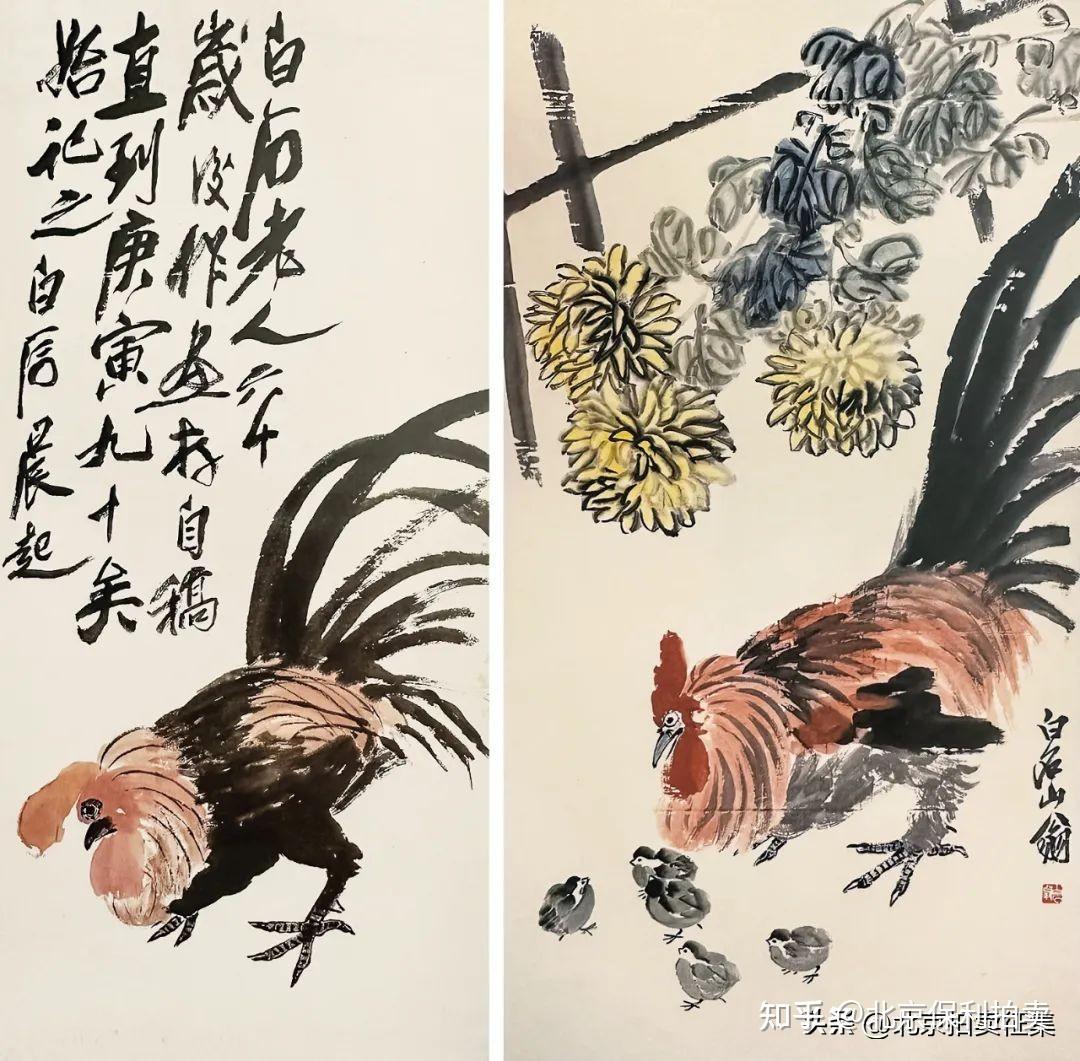 白石老人六十
歲後作画存自稿
直到庚寅九十矣
始記之白石晨起
白石山翁
知乎 @北京保利拍卖
头条 @北京拍卖征集